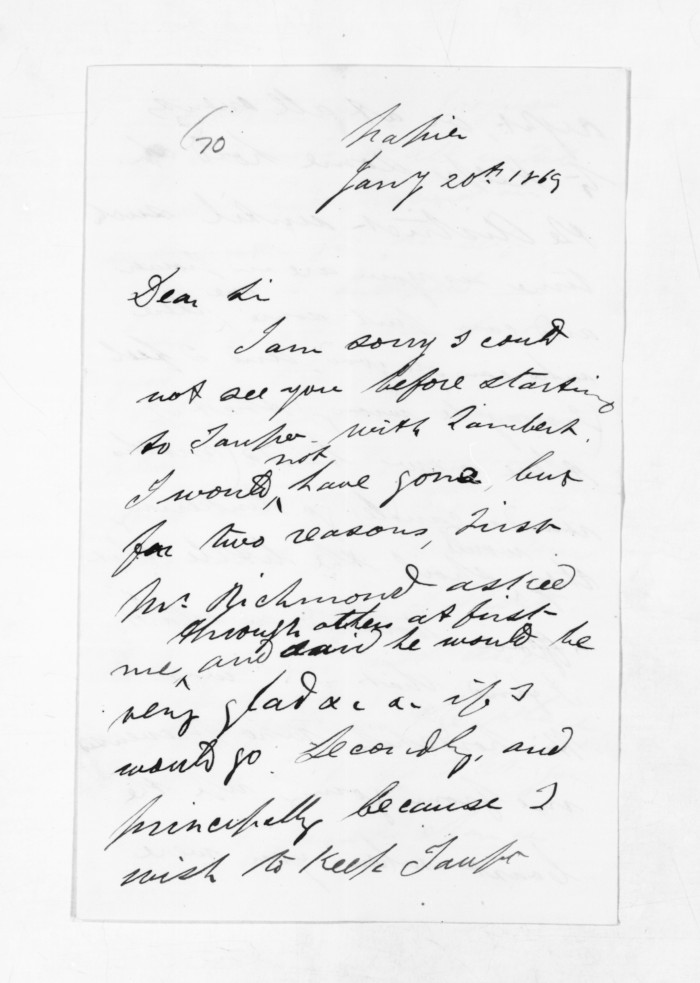 70
Napier
Jany 20th 1869
Dear Sir
I am sorry I could
not see you before starting
to Taupo with Lambert.
I would not have gone, but
for two reasons, First
Mr. Richmond asked
through others at first
me, and said he would be
very glad &c &c if I
would go. Secondly, and
principally because I
wish to keep Taupo